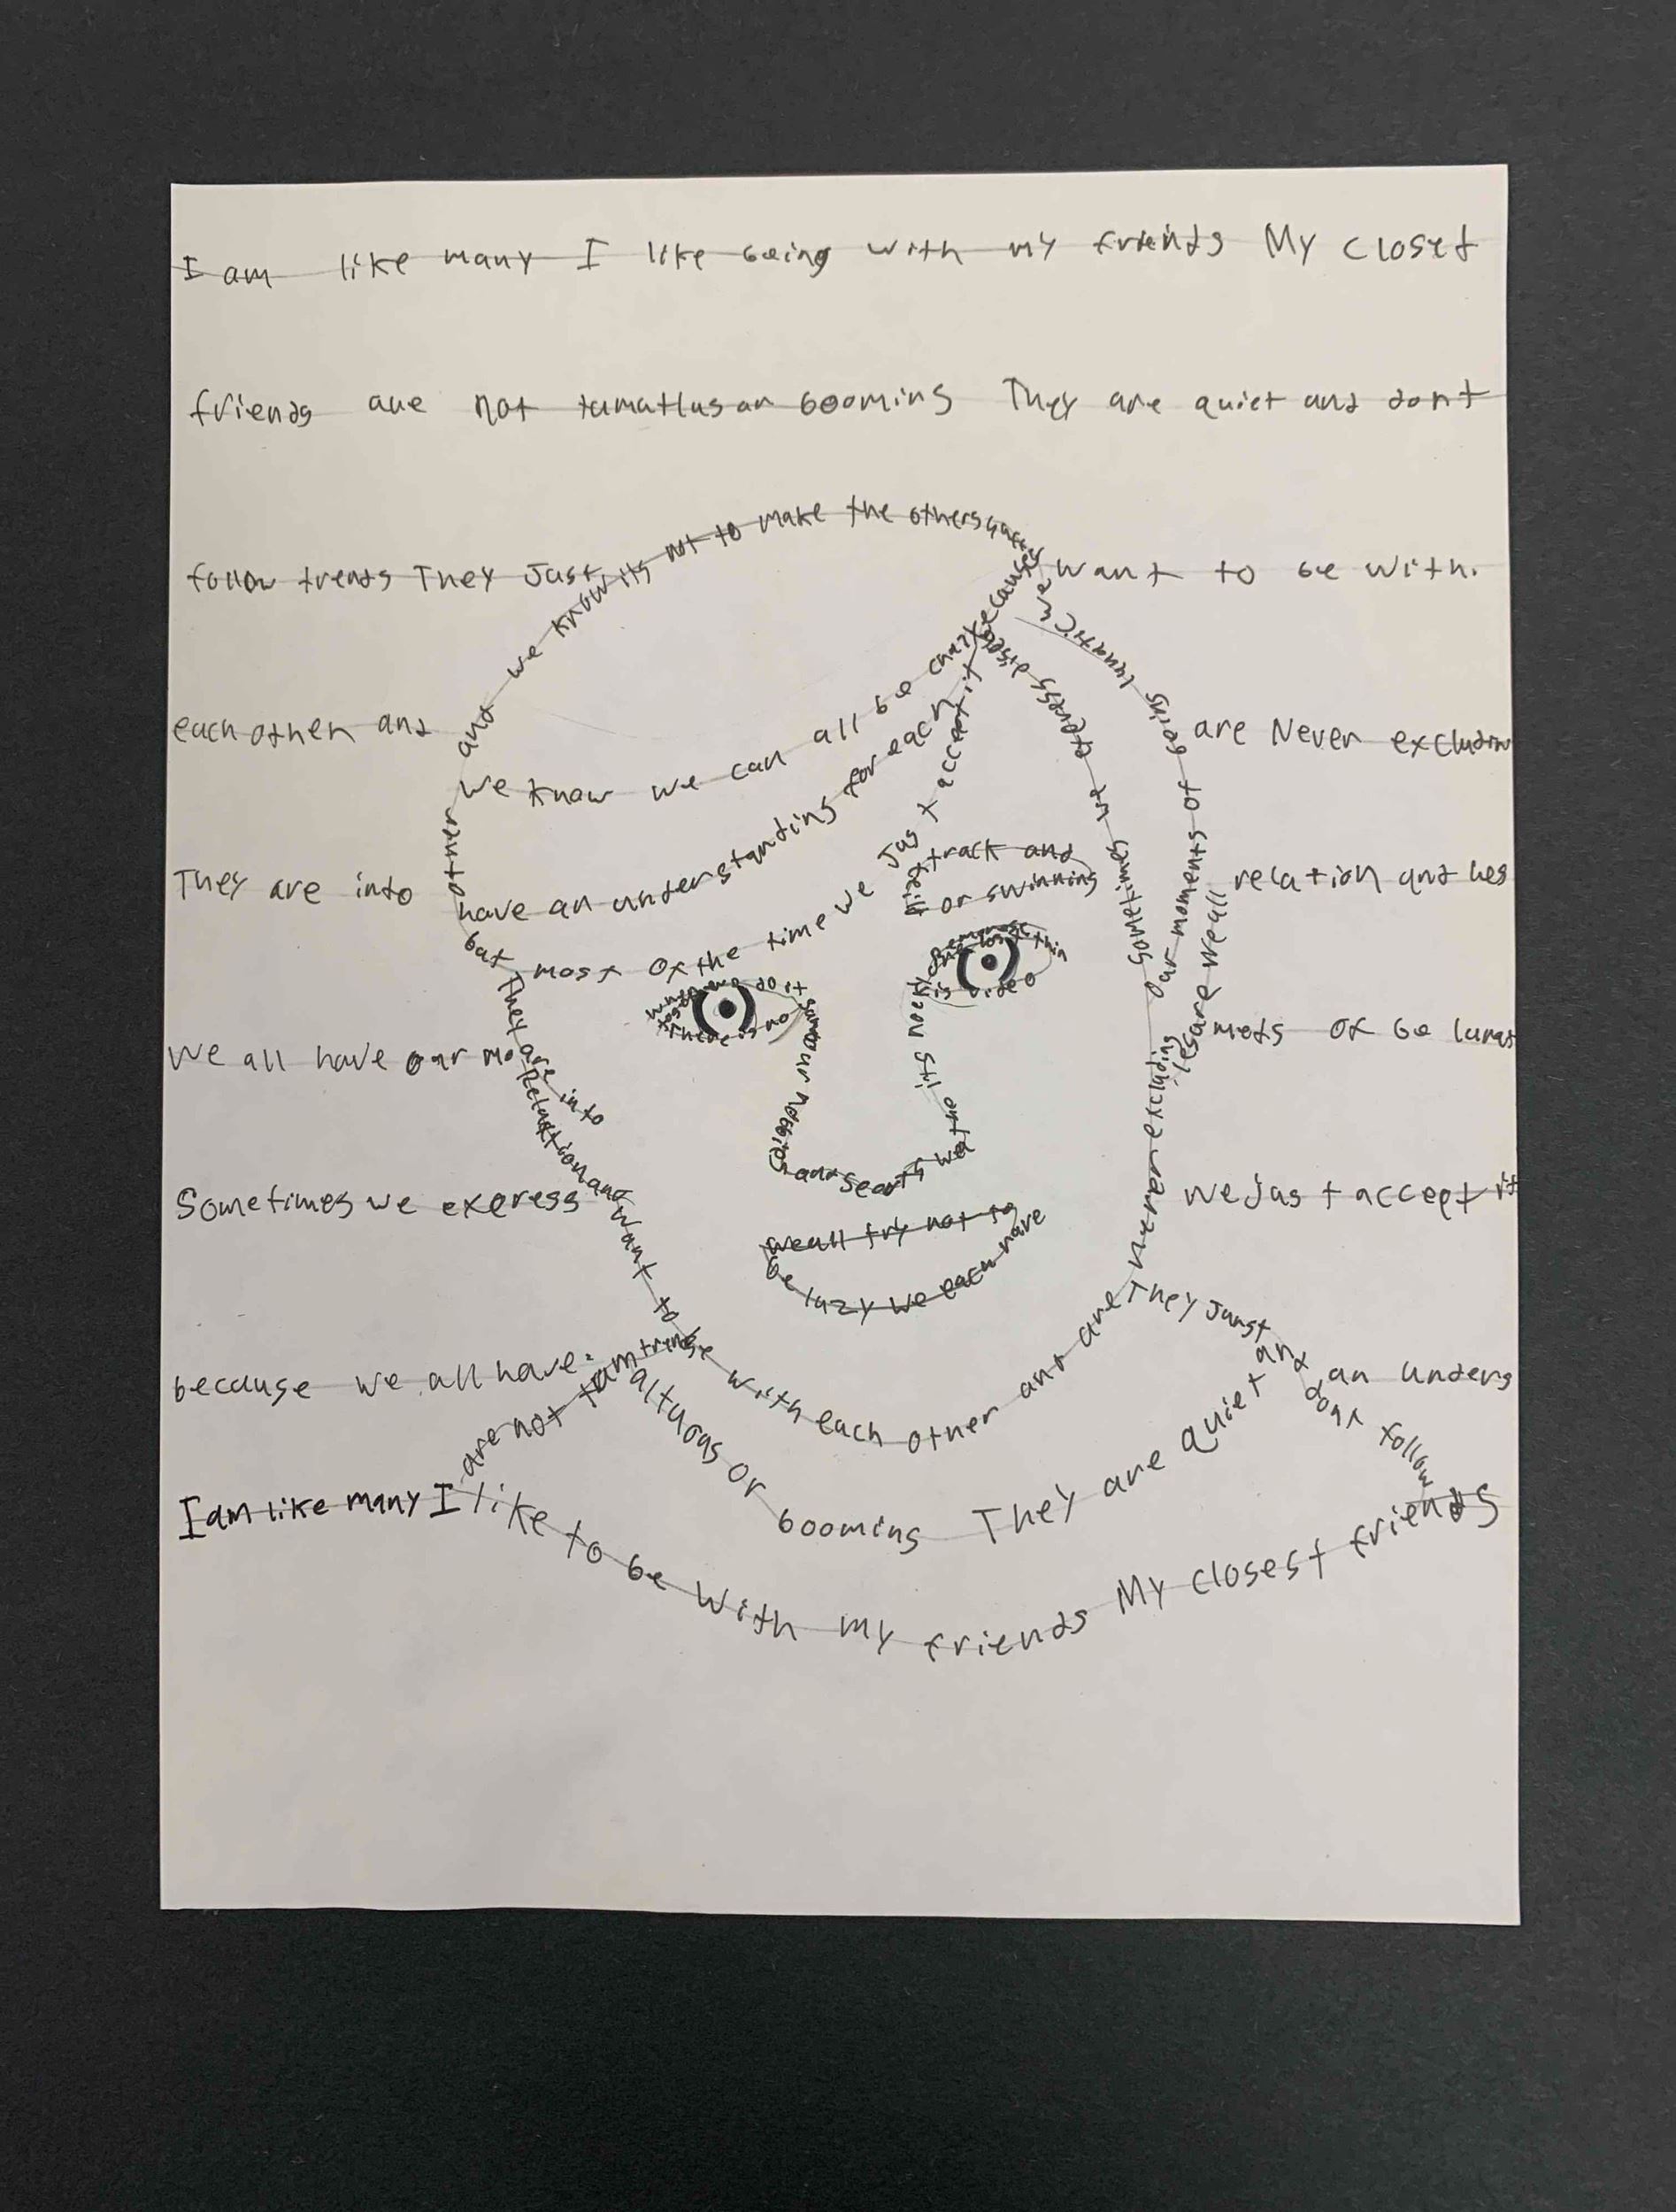 I am like many I like being with my friends My closest
friends are not tumatlus or booming They are quiet and dont
follow trends They Just want to be with.
each other and are Never excludin
They are into relation and les
We all have our mo mets of be lunat
Sometimes we express we jus t accept it
because we all have an unders
I am like many I like to be with my friends My closest friends
are not tum
altuous or booming They are quiet and dont follow
trends
They Junst
want to be with each other and are never excluding
They are into
Relaction and
lesare we all
our moments of being lunatic
Sometimes we express
because we
we know we can all be crazy
and we know its not to make the others
have an understanding for each
other
but most of the time we Jus t accept it
track and
or swimming
there is no
do it
our hobbies
our seorts
its
is video
we all try not to
be lazy we each have